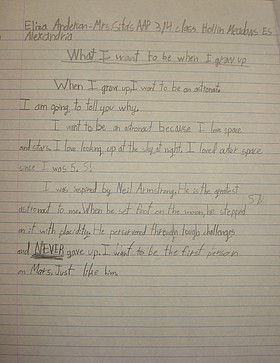 Eliza Anderson-Mrs. Gita's AAP 3/4 class Hollin Meadows ES
Alexandria
What I want to be when I grow up
When I grow up, I want to be an astronate.
I am going to tell you why.
I want to be an astronaut because I love space
and stars. I love looking up at the sky at night. I loved outer space
since I was 5. 51
I was inspired by Neil Armstrong. He is the greatest
astronaut to me. When he set foot on the moon, he stepped
on it with placidity. He persevered through tough challenges
and NEVER gave up. I want to be the first person
on Mars. Just like him.